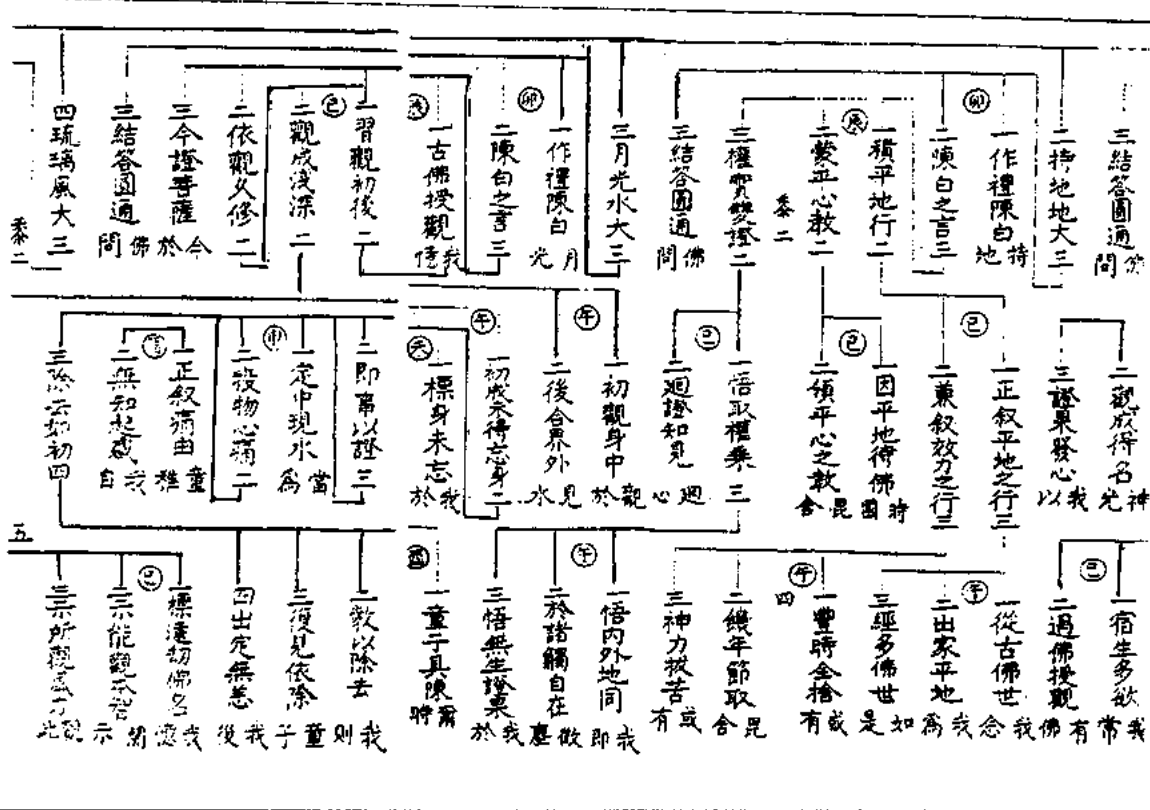 三結答圓通
佛問
二持地地大三
一作禮陳白
持地
卯
二陳白之言三
一積平地行二
辰
二蒙平心教二
三權實雙證二
三結答圓通
佛問
三月光水大三
一作禮陳白
月光
卯
二陳白之言三
一古佛授觀
我憶
一習觀初後二
巳
二觀成淺深二
二依觀久修二
三今證菩薩
三結答圓通
今於佛問
四琉璃風大三
二觀成得名
神光
三證果發心
我以
一正叙平地之行三
巳
二兼叙效力之行三
一因平地待佛
時國
巳
二領平心之教
毘舍
一悟取權乘三
巳
二迴證知見
迴心
一初觀身中
觀於
午
二後合界外
見水
午
一初成未得忘身二
一標身未忘
我於
二即事以證三
一定中現水
當為
二投物心痛二
一正叙痛由
童稚
二無知起惑
我自
三除去如初四
一宿生多欲
我常
巳
二過佛授觀
有佛
一從古佛世
我念
午
二出家平地
我為
三經多佛世
如是
一豐時全捨
或有
午
四
二饑年節取
毘舍
三神力拔苦
或有
一悟內外地同
我即
午
二於諸觸自在
微塵
三悟無生證果
我於
一童子具陳
爾時
酉
一教以除去
我則
二復見依除
童子
四出定無恙
我後
一標遠劫佛名
我憶
巳
五